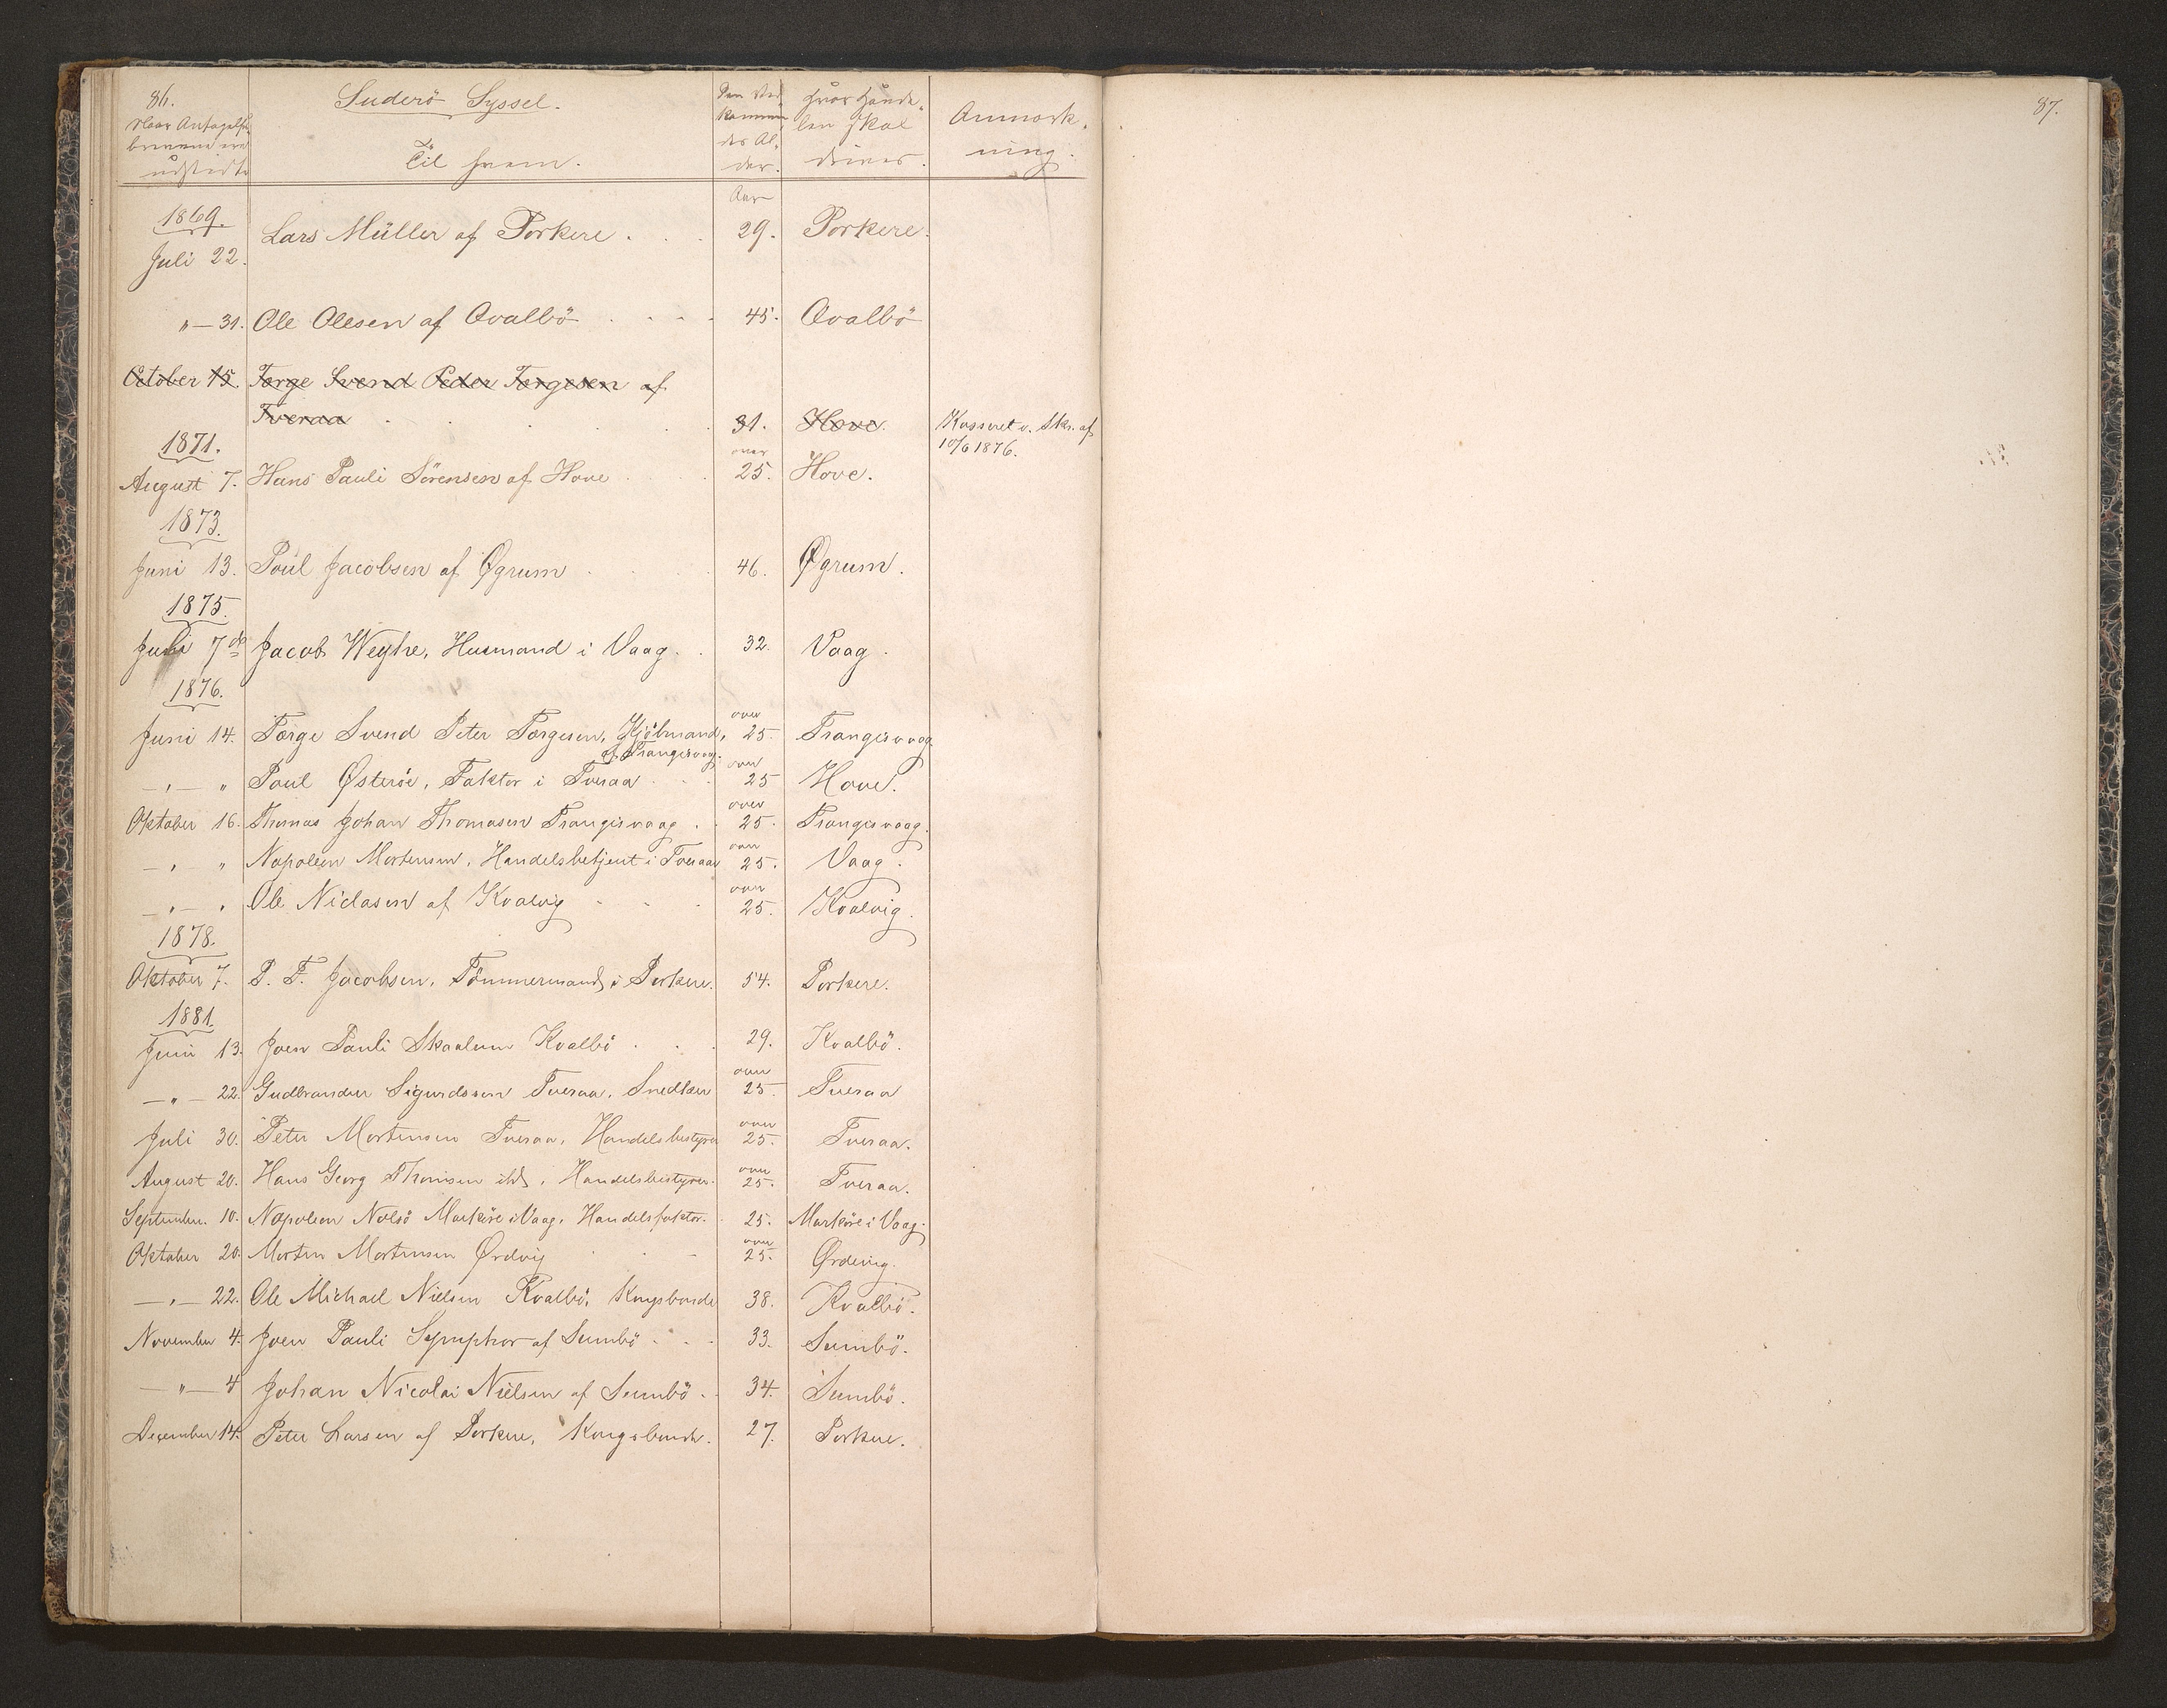 86.
Suderö Syssel.
Naar
udstedte
Til hvem.
Den Ved-
kommen-
des Al-
der.
Hvor Hande-
len skal
drives.
Anmærk-
ning.
87.
Aar
1869.
Juli 22. Lars Müller af Porkere . . . 29. Porkere.
" — 31. Ole Olesen af Qvalbö . . . . 45. Qvalbö
October 15. Tørge Svend Peder Tørgesen af
Tveraa . . . . . 31. Hove. Kasseret v. Skr. af
10/6 1876.
1871. over
August 7. Hans Pauli Sörensen af Hove . . 25. Hove.
1873.
Juni 13. Poul Jacobsen af Øgrum . . . 46. Øgrum.
1875.
Juli 7de Jacob Weyhe, Husmand i Vaag. . 32. Vaag.
1876.
over
Juni 14. Tørge Svend Peter Tørgesen, Kjöbmand, 25. Trangisvaag
af Trangisvaag. over
— " — " Poul Østeröe, Faktor i Tveraa . . . 25 Hove.
over
Oktober 16. Thomas Johan Thomasen Trangisvaag . . 25. Trangisvaag.
over
— " — " Napoleon Mortensen, Handelsbetjent i Tveraa 25. Vaag.
over
— " — " Ole Niclasen af Kvalvig . . . 25. Kvalvig.
1878.
Oktober 7. P. F. Jacobsen, Tömmermand i Porkere. 54. Porkere.
1881.
Juni 13. Joen Pauli Skaalum Kvalbö . . . 29. Kvalbö.
over
— " — 22. Gudbrandur Sigurdsson Tveraa, Snedker 25. Tveraa
over
Juli 30. Peter Mortensen Tveraa, Handelsbestyrer 25. Tveraa.
over
August 20. Hans Georg Thomsen ibd., Handelsbestyrer. 25. Tveraa.
September. 10. Napoleon Nolsö Marköre i Vaag, Handelsfaktor. 25. Marköre i Vaag.
over
Oktober 20. Morten Mortensen Ørdvig . . - 25. Ørdevig.
— " — 22. Ole Michael Nielsen Kvalbö, Kongsbonde 38. Kvalbö.
November 4. Joen Pauli Symphor af Sumbö . . . 33. Sumbö.
— " — 4 Johan Nicolai Nielsen af Sumbö . . 34. Sumbö.
December 14. Peter Larsen af Porkere, Kongsbonde. 27. Porkere.